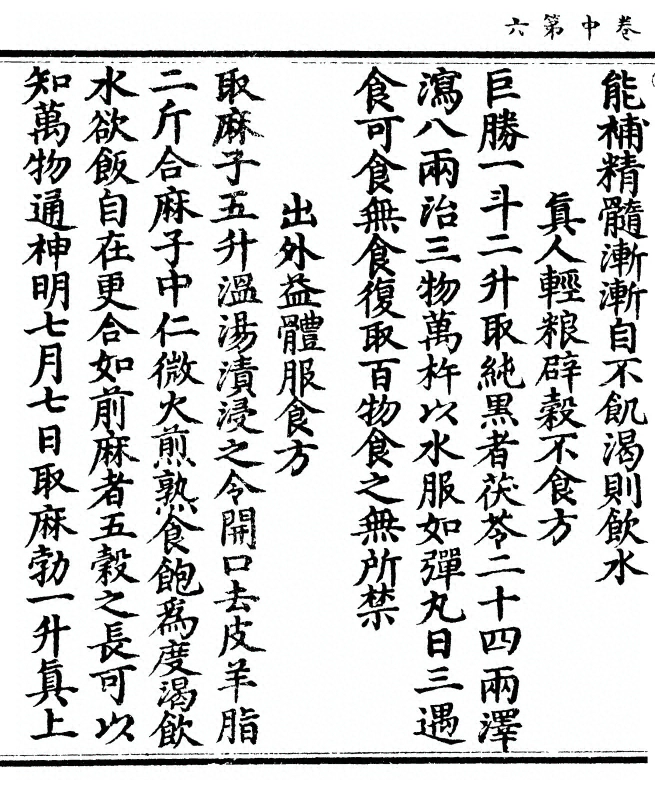 卷中第六
能補精髓漸漸自不飢渴則飲水
真人輕粮辟穀不食方
巨勝一斗二升取純黑者茯苓二十四兩澤
瀉八兩治三物萬杵以水服如彈丸日三遇
食可食無食復取百物食之無所禁
出外益體服食方
取麻子五升溫湯漬浸之令開口去皮羊脂
二斤合麻子中仁微火煎熟食飽為度渴飲
水欲飯自在更合如前麻者五穀之長可以
知萬物通神明七月七日取麻勃一升真上